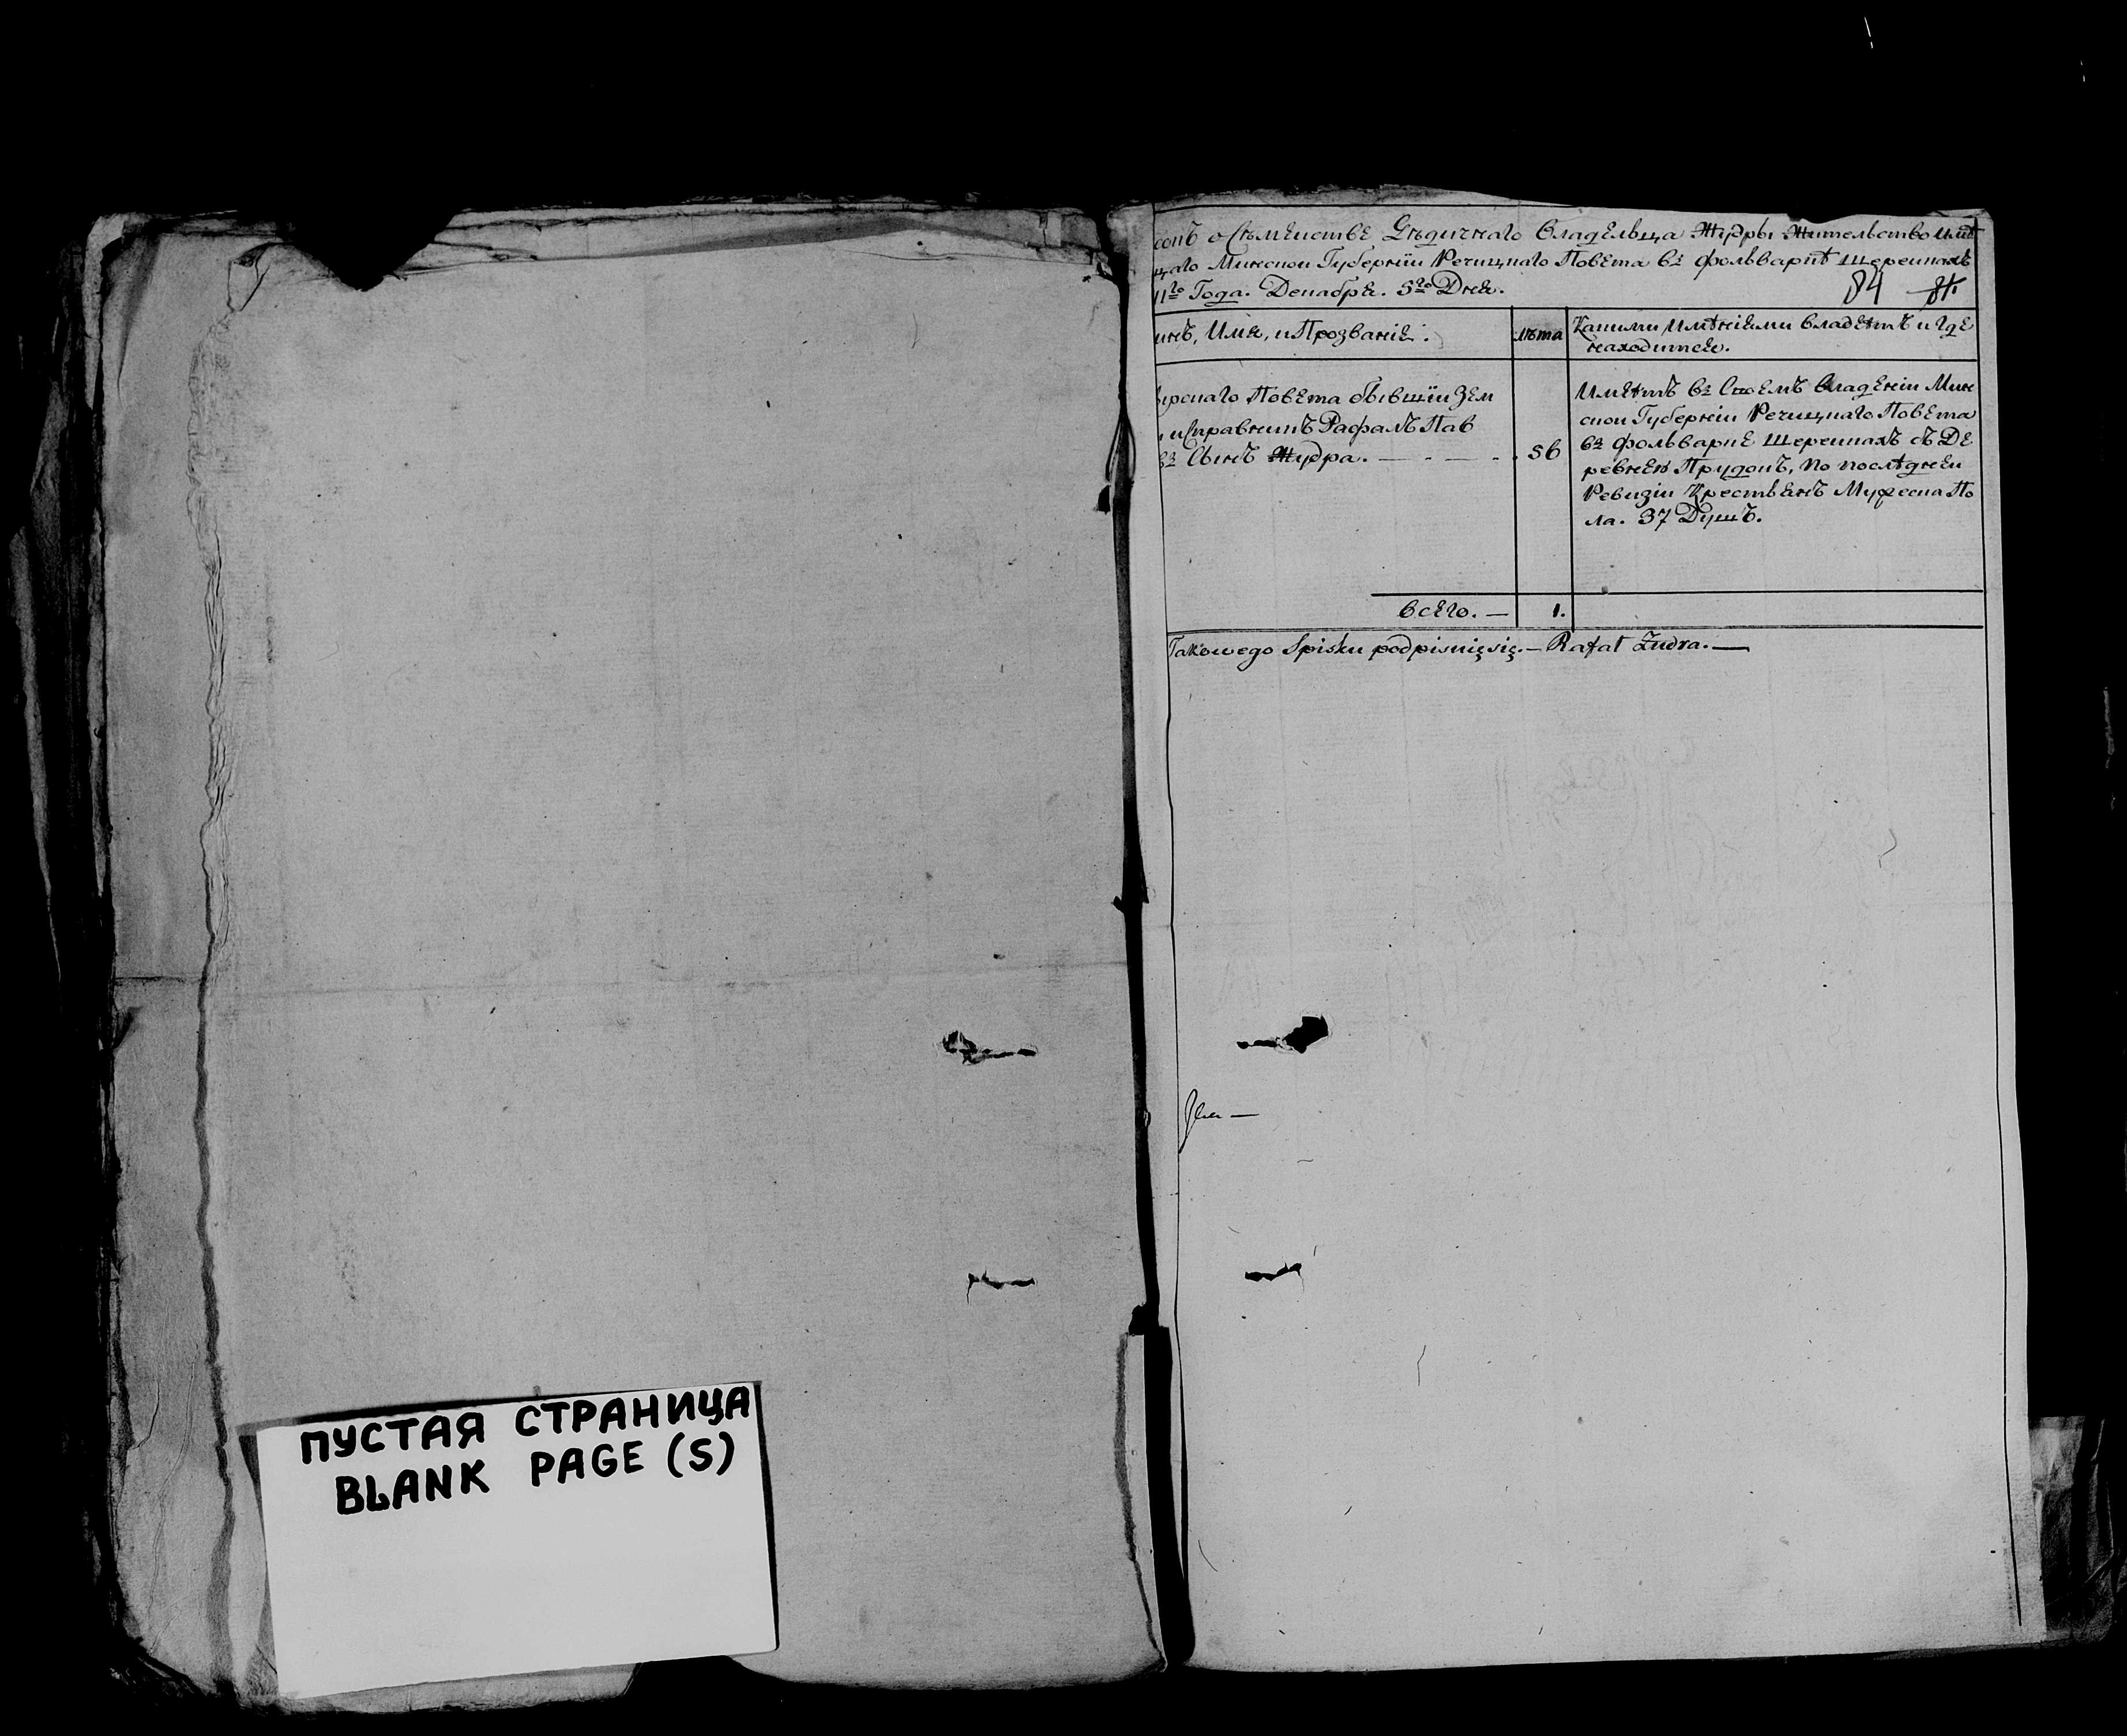 сокъ о Семействе Дѣдичнаго Владельца Жудры Жительство Имѣ
щаго Минской Губерніи Речицкаго Повета въ фольваркѣ Щерешкахъ
11го Года. Декабря. 5го Дня.
84 84.
инъ, Имя, и Прозваніе.
лѣта
Какими Имѣніями владеетъ и где
находится.
Повета бывшій Зем
исправникъ Рафалъ Пав
въ Сынъ Жудра.
56
Имеетъ въ Своемъ владеніи Мин
ской Губерніи Речицкаго Повета
въ фольварке Щерешкахъ съ Де
ревнею Прудокъ, по последней
Ревизіи Крестьянъ Мужеска По
ла. 37 Душъ.
всего. — 1.
Takowego Spisku podpisuię się. — Rafał Żudra. —
ПУСТАЯ СТРАНИЦА
BLANK PAGE (S)